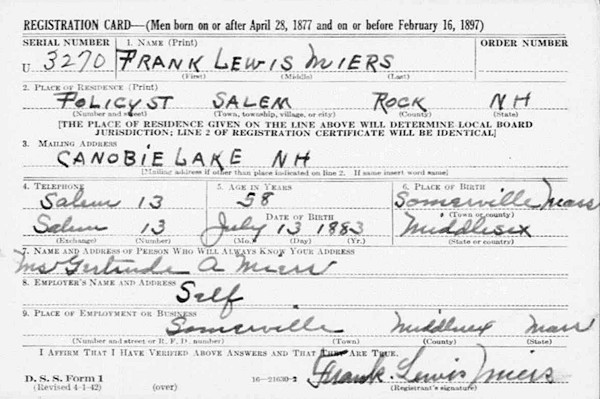 REGISTRATION CARD—(Men born on or after April 28, 1877 and on or before February 16, 1897)
SERIAL NUMBER 1. NAME (Print) ORDER NUMBER
U 3270 FRANK LEWIS MIERS
(First) (Middle) (Last)
2. PLACE OF RESIDENCE (Print)
POLICY ST SALEM ROCK NH
(Number and street) (Town, township, village, or city) (County) (State)
[THE PLACE OF RESIDENCE GIVEN ON THE LINE ABOVE WILL DETERMINE LOCAL BOARD
JURISDICTION; LINE 2 OF REGISTRATION CERTIFICATE WILL BE IDENTICAL]
3. MAILING ADDRESS
CANOBIE LAKE NH
[Mailing address if other than place indicated on line 2. If same insert word same]
4. TELEPHONE 5. AGE IN YEARS 6. PLACE OF BIRTH
Salem 13 58 Somerville Mass
DATE OF BIRTH (Town or county)
Salem 13 July 13 1883 Middlesex
(Exchange) (Number) (Mo.) (Day) (Yr.) (State or country)
7. NAME AND ADDRESS OF PERSON WHO WILL ALWAYS KNOW YOUR ADDRESS
Gertrude A Miers
8. EMPLOYER'S NAME AND ADDRESS
Self
9. PLACE OF EMPLOYMENT OR BUSINESS
Somerville Middlesex Mass
(Number and street or R. F. D. number) (Town) (County) (State)
I AFFIRM THAT I HAVE VERIFIED ABOVE ANSWERS AND THAT THEY ARE TRUE.
D. S. S. Form 1
(Revised 4-1-42) (over) 16—21630-2 Frank Lewis Miers
(Registrant's signature)